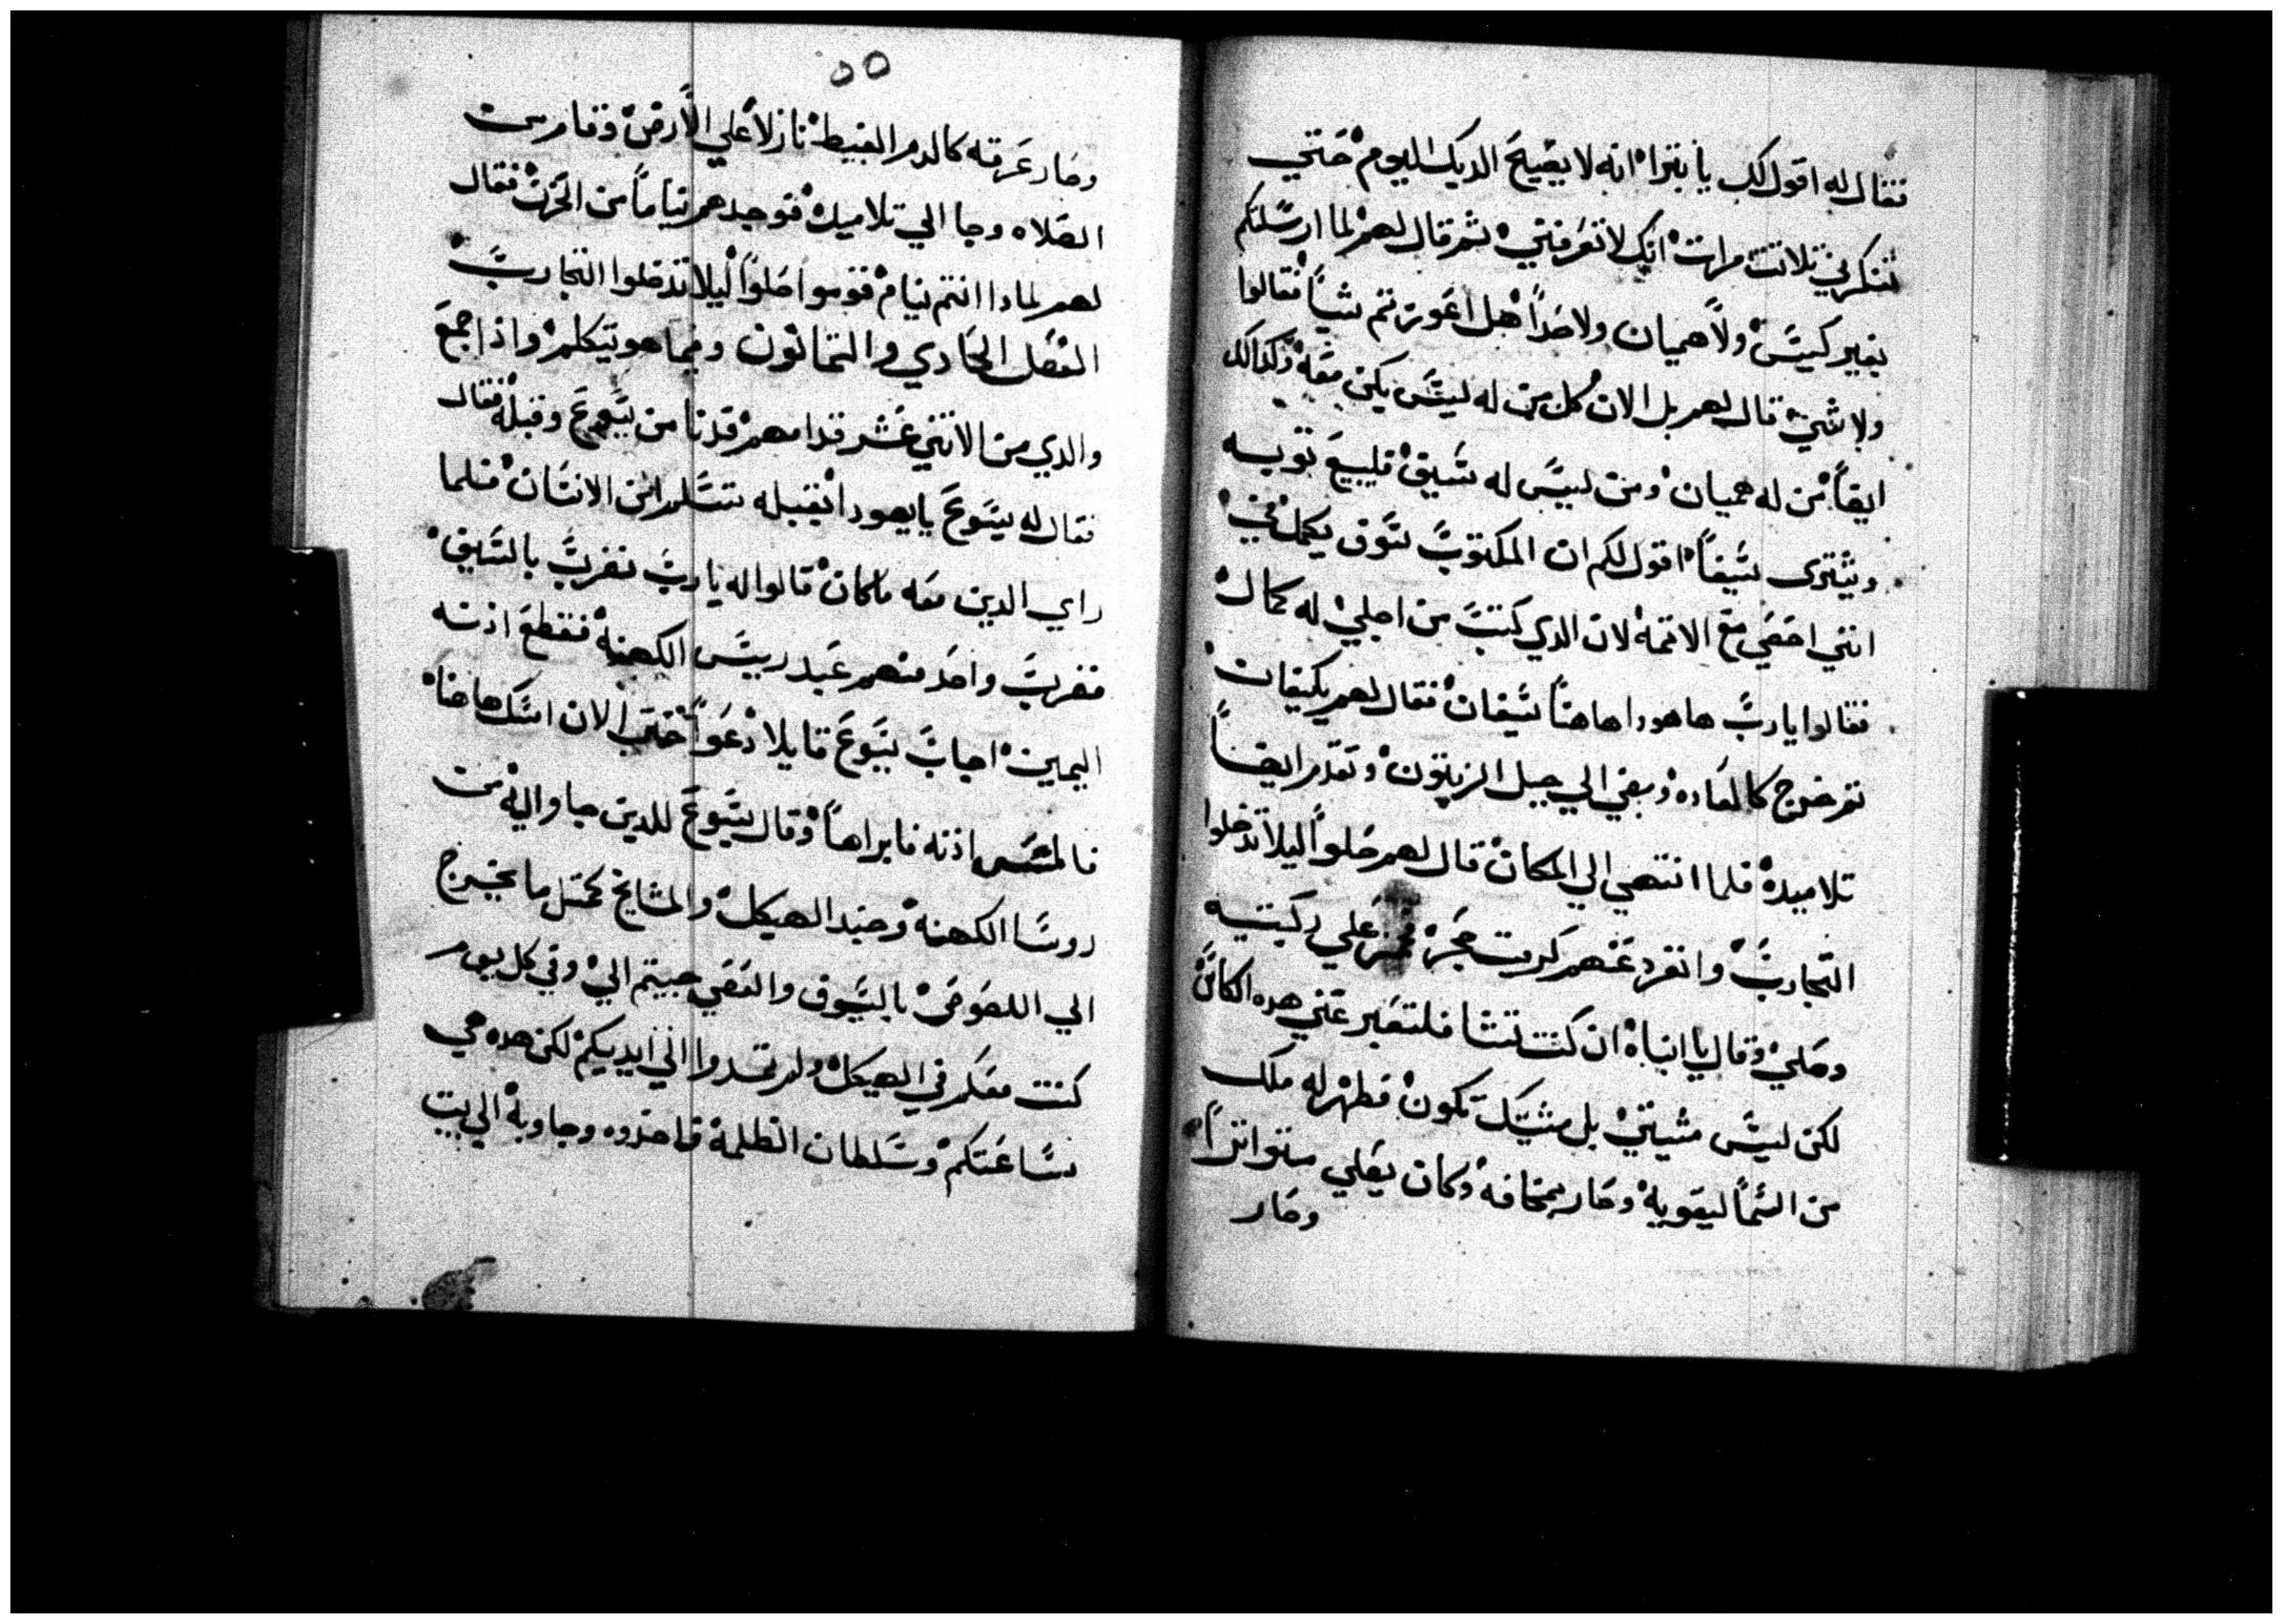 فقال له اقول لك يا بترا انه لا يصيح الديك اليوم حتي
تنكرني تلاتت مرات انك لا تعرفني ثم قال لهم لما ارسلتكم
بغير كيس ولا هميان ولا حدا هل اعوزتم شيا فقالوا
ولا شي قال لهم بل الان كل من له كيس يكن معه وكدالك
ايضا من له هميان ومن ليس له سيف فليبيع توبه
ويشتري سيفا اقول لكم ان المكتوب سوف يكمل في
انني احصي مع الاتمه لان الدي كتب من اجلي له كمال
فقالوا يا رب ها هودا هاهنا سيفان فقال لهم يكيفان
تم خرج كالعاده ومضي الي جبل الزيتون وتقدم ايضا
تلاميده فلما انتهي الي المكان قال لهم صلوا ليلا تدخلوا
التجارب وانفرد عنهم كرمت حجر فخر علي ركبتيه
وصلي وقال يا ابتاه ان كنت تشا فلتعبر عني هده الكاس
لكن ليس مشيتي بل مشيتك تكون فظهر له ملك
من السما ليقويه وصار بمخافه وكان يصلي متواترا
وصار
٥٥
وصار عرقه كالدم العبيط نازلا علي الارض وقام من
الصلاه وجا الي تلاميده فوجدهم نياما من الحزن فقال
لهم لمادا انتم نيام قوموا صلوا ليلا تدخلوا التجارب
الفصل الحادي والتمانون وفيما هو يتكلم واذا جمع
والدي من الاتني عشر قدامهم فدنا من يسوع وقبله فقال
فقال له يسوع يا يهودا بقبله تسلم ابن الانسان فلما
راي الدين معه ما كان قالوا له يا رب نضرب بالسيف
فضرب واحد منهم عبد رييس الكهنه فقطع اذنه
اليمين اجاب يسوع قايلا دعوا حتي الان امسك هاهنا
فالمس اذنه فابراها وقال يسوع للدين جاوا اليه من
روسا الكهنه وجند الهيكل والمشايخ كمتل ما يخرج
الي اللصوص بالسيوف والعصي جييتم الي وفي كل يوم
كنت معكم في الهيكل ولم تمدوا الي ايديكم لكن هده هي
ساعتكم وسلطان الظلمه فاخدوه وجاو به الي بيت